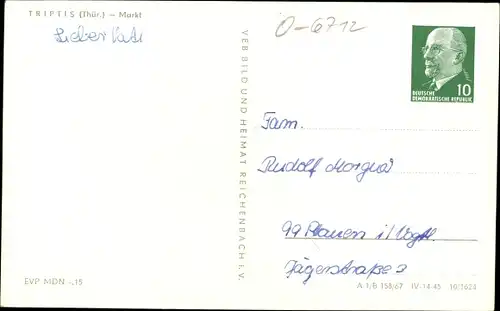 TRIPTIS (Thür.) – Markt
Lieber
O-6712
10
DEUTSCHE
DEMOKRATISCHE REPUBLIK
VEB BILD UND HEIMAT REICHENBACH i. V.
Fam.
Rudolf
99 Plauen i/Vogtl.
Jägerstraße
EVP MDN -,15
A 1/B 158/67 IV-14-45 10/1624